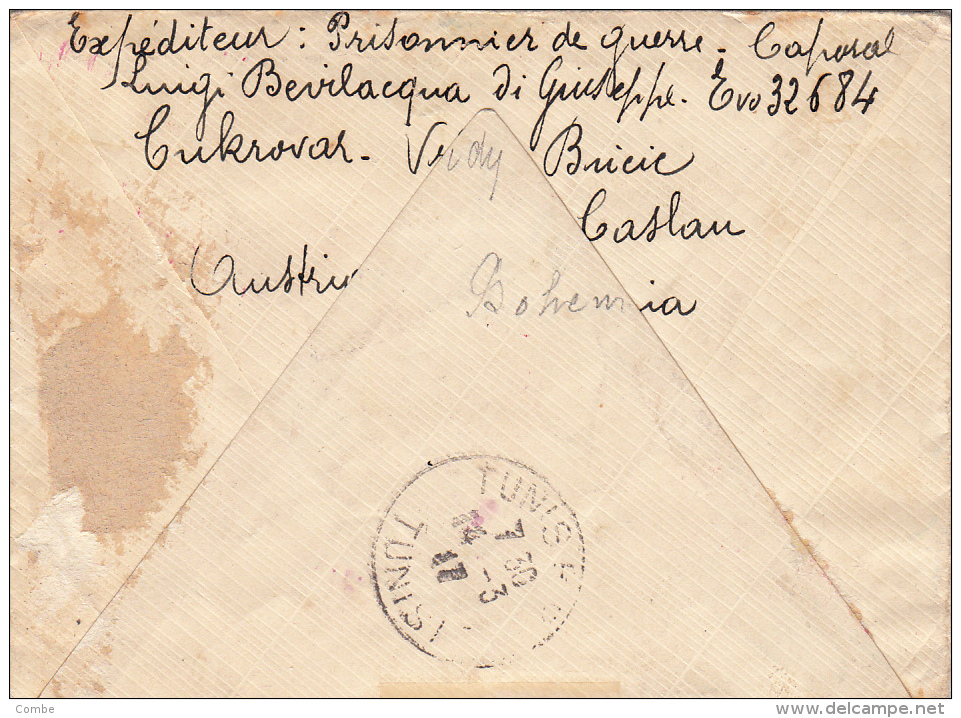 Expéditeur: Prisonnier de guerre - Caporal
Luigi Bevilacqua di Giuseppe. Evo 32684
Cukrovar - Vrdy Bucic
Caslau
Austria Bohemia
TUNIS
7 30
24 -3
17
TUNISI
Combe
www.delcampe.net